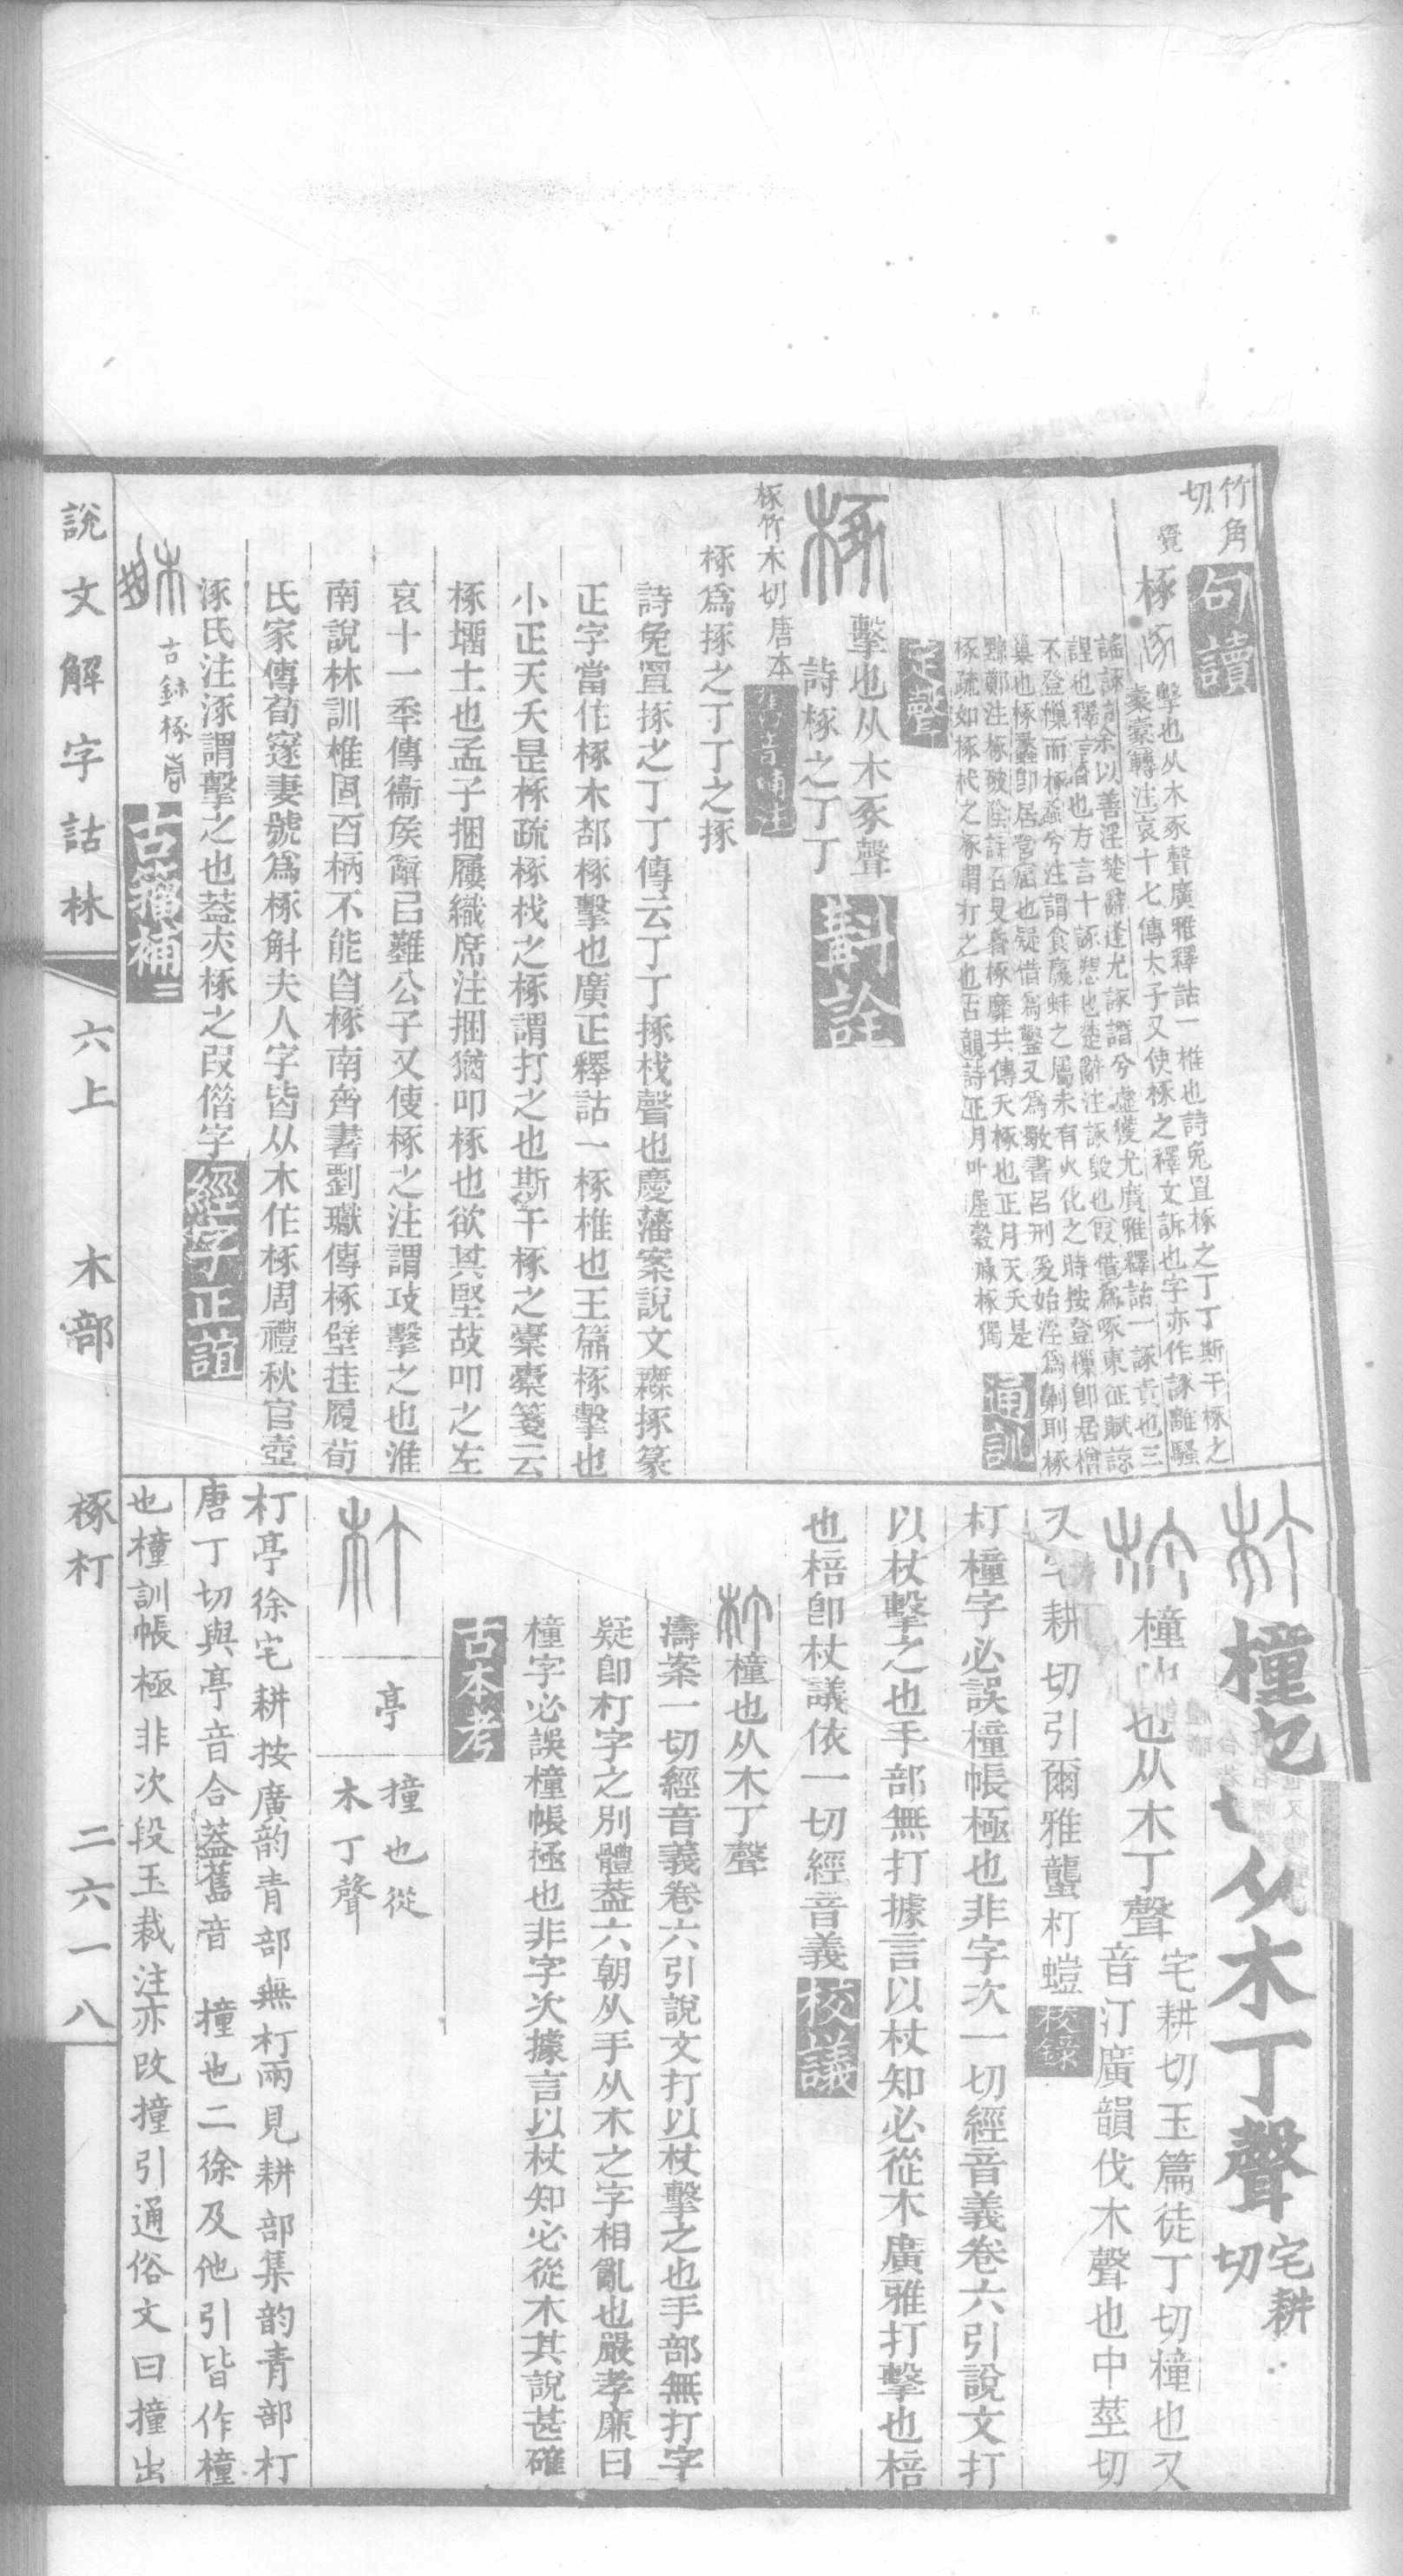 竹角
切
句讀
覺 椓 擊也从木豖聲廣雅釋詁一椎也詩兔罝椓之丁丁斯干椓之
橐橐轉注哀十七傳太子又使椓之釋文訴也字亦作諑離騷
謠諑謂余以善淫楚辭逢尤諑譖兮虛獲尤廣雅釋詁一諑責也三
諑愬也楚辭注諑毀也叚借爲啄東征賦諒
不登樔而椓蠡兮注謂食蠃蚌之屬未有火化之時按登樔卽居橧
巢也椓蠡卽居營窟也疑借爲鑿又爲斀書呂刑爰始淫爲劓刵椓
黥鄭注椓破陰詩召旻昏椓靡共傳夭椓也正月天夭是
椓疏如椓杙之椓謂打之也古韻詩正月叶屋穀祿椓獨
通訓
定聲
椓 擊也从木豖聲
詩椓之丁丁
斠詮
椓竹木切唐本
椓爲㧻之丁丁之㧻
詩兔罝㧻之丁丁傳云丁丁㧻杙聲也慶藩案說文無㧻篆
正字當作椓木部椓擊也廣疋釋詁一椓椎也玉篇椓擊也
小正天夭是椓疏椓杙之椓謂打之也斯干椓之橐橐箋云
椓壖土也孟子捆屨織席注捆猶叩椓也欲其堅故叩之左
哀十一年傳衞矦辭已難公子又使椓之注謂攻擊之也淮
南說林訓椎固百柄不能自椓南齊書劉瓛傳椓壁挂履荀
氏家傳荀邃妻號爲椓斛夫人字皆从木作椓周禮秋官壺
涿氏注涿謂擊之也蓋夾椓之叚借字
經字正誼
古鉢椓
古籀補二
朾 橦也从木丁聲
宅耕
切
朾 橦也从木丁聲
宅耕切玉篇徒丁切橦也又
音汀廣韻伐木聲也中莖切
又宅耕切引爾雅蠪朾螘
校錄
朾橦字必誤橦帳極也非字次一切經音義卷六引說文打
以杖擊之也手部無打據言以杖知必從木廣雅打擊也棓
也棓卽杖議依一切經音義
校議
朾橦也从木丁聲
濤案一切經音義卷六引說文打以杖擊之也手部無打字
疑卽朾字之別體蓋六朝从手从木之字相亂也嚴孝廉曰
橦字必誤橦帳極也非字次據言以杖知必從木其說甚確
古本考
朾
亭
撞也從
木丁聲
朾亭徐宅耕按廣韵青部無朾兩見耕部集韵青部朾
唐丁切與亭音合蓋舊音 撞也二徐及他引皆作橦
也橦訓帳極非次段玉裁注亦改撞引通俗文曰撞出
說文解字詁林 六上 木部 椓朾 二六一八